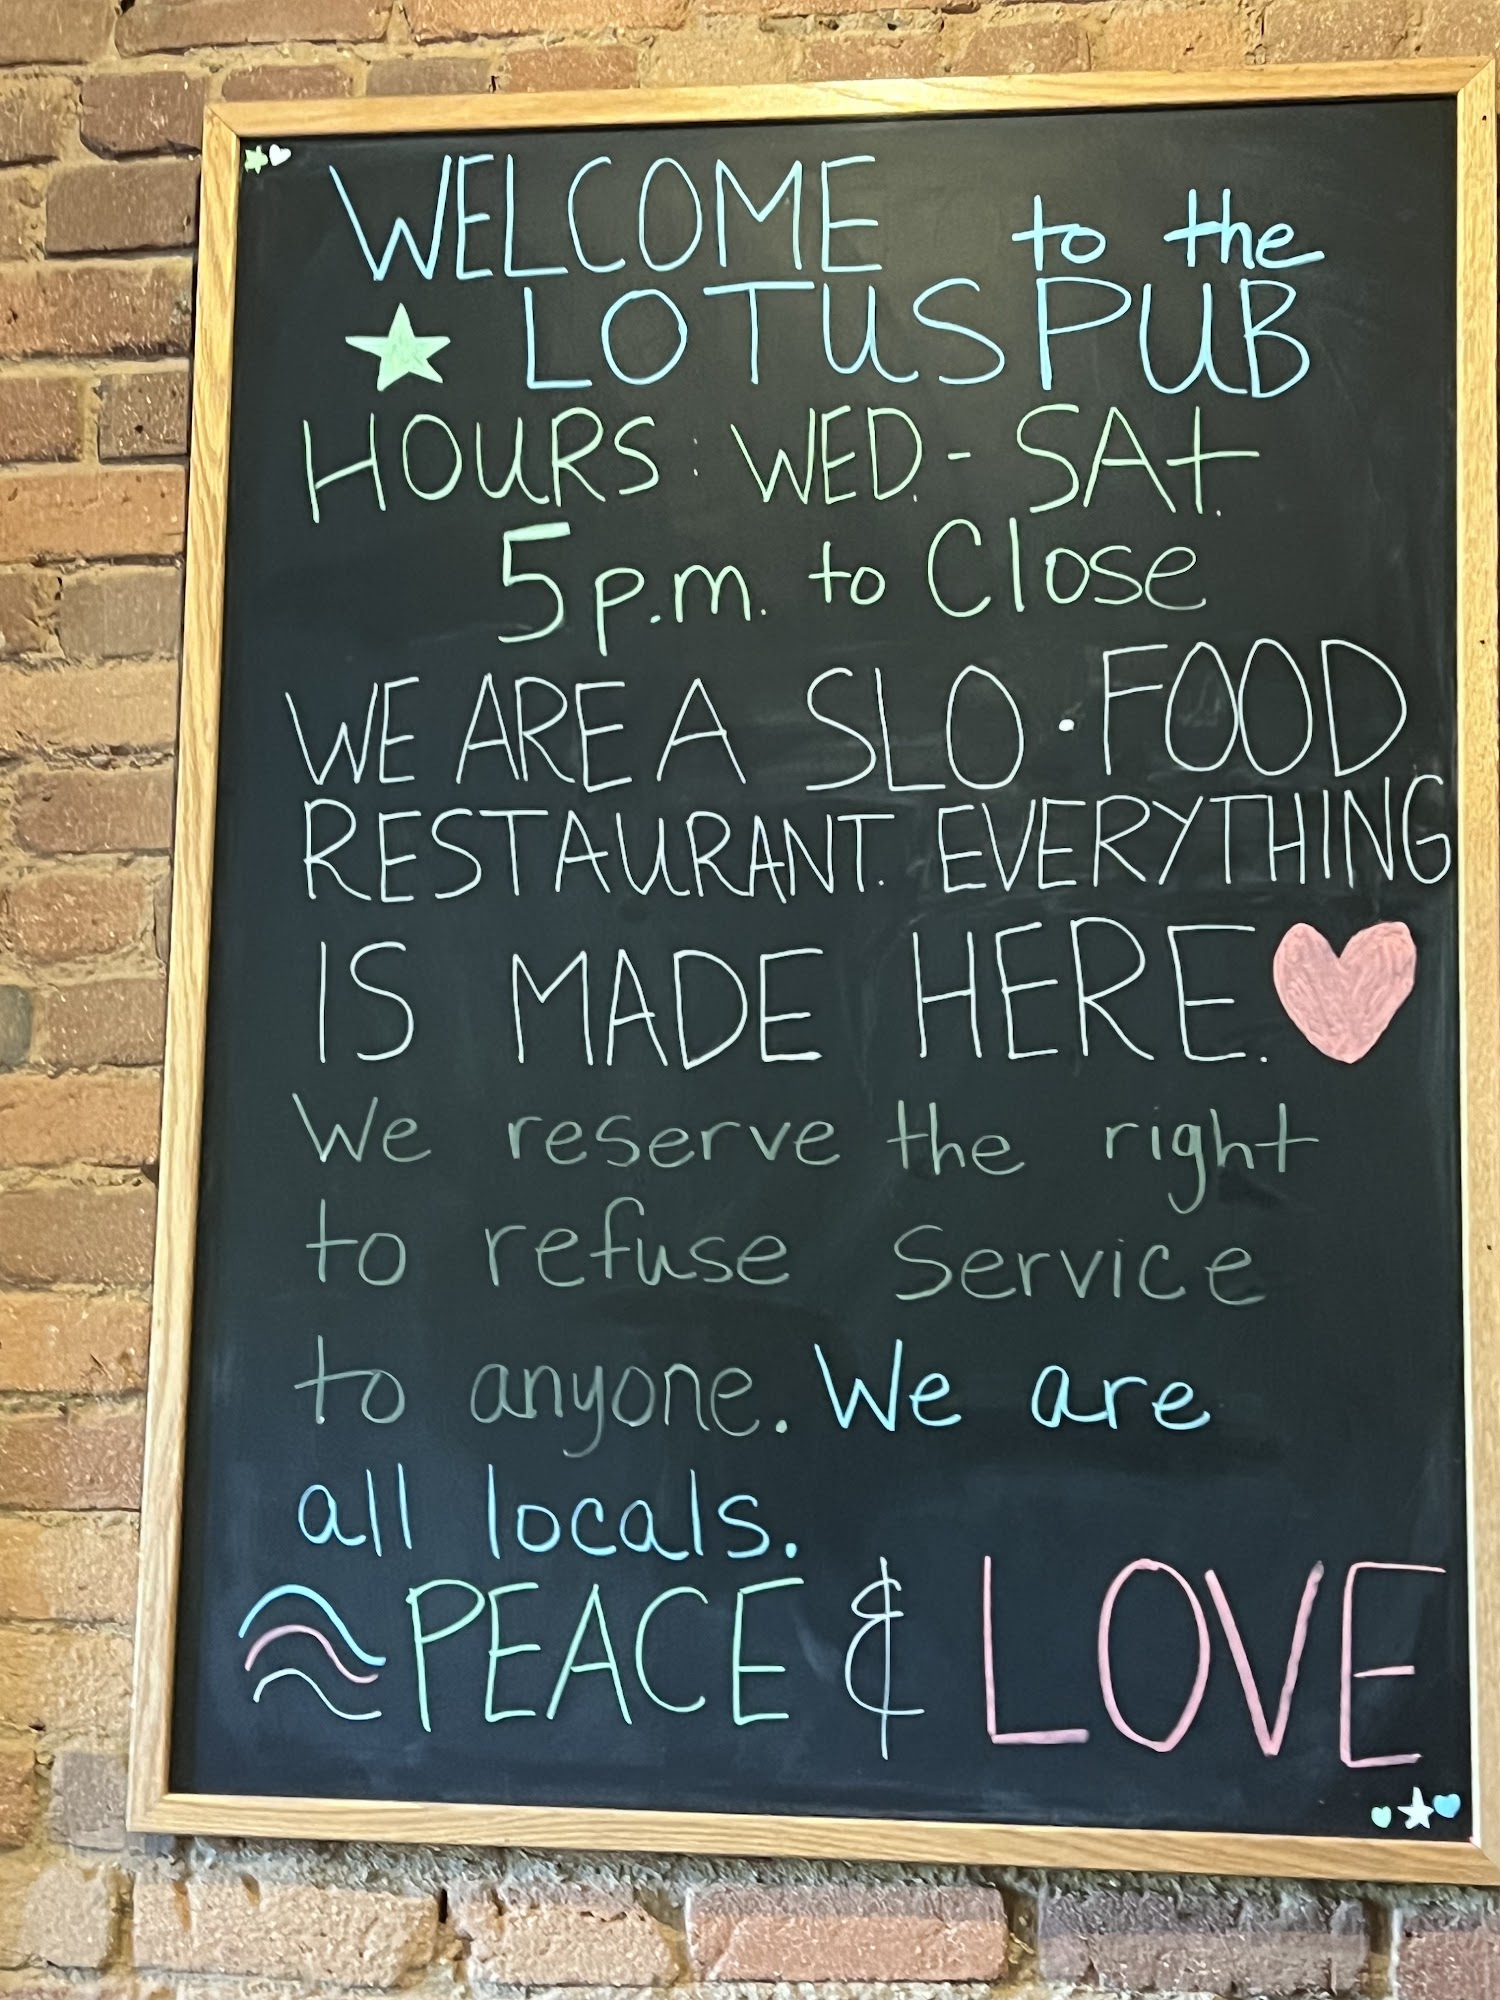 WELCOME to the
LOTUS PUB
HOURS: WED. - SAt.
5p.m. to Close
WE ARE A SLO·FOOD
RESTAURANT. EVERYTHING
IS MADE HERE.
We reserve the right
to refuse Service
to anyone. We are
all locals.
PEACE & LOVE